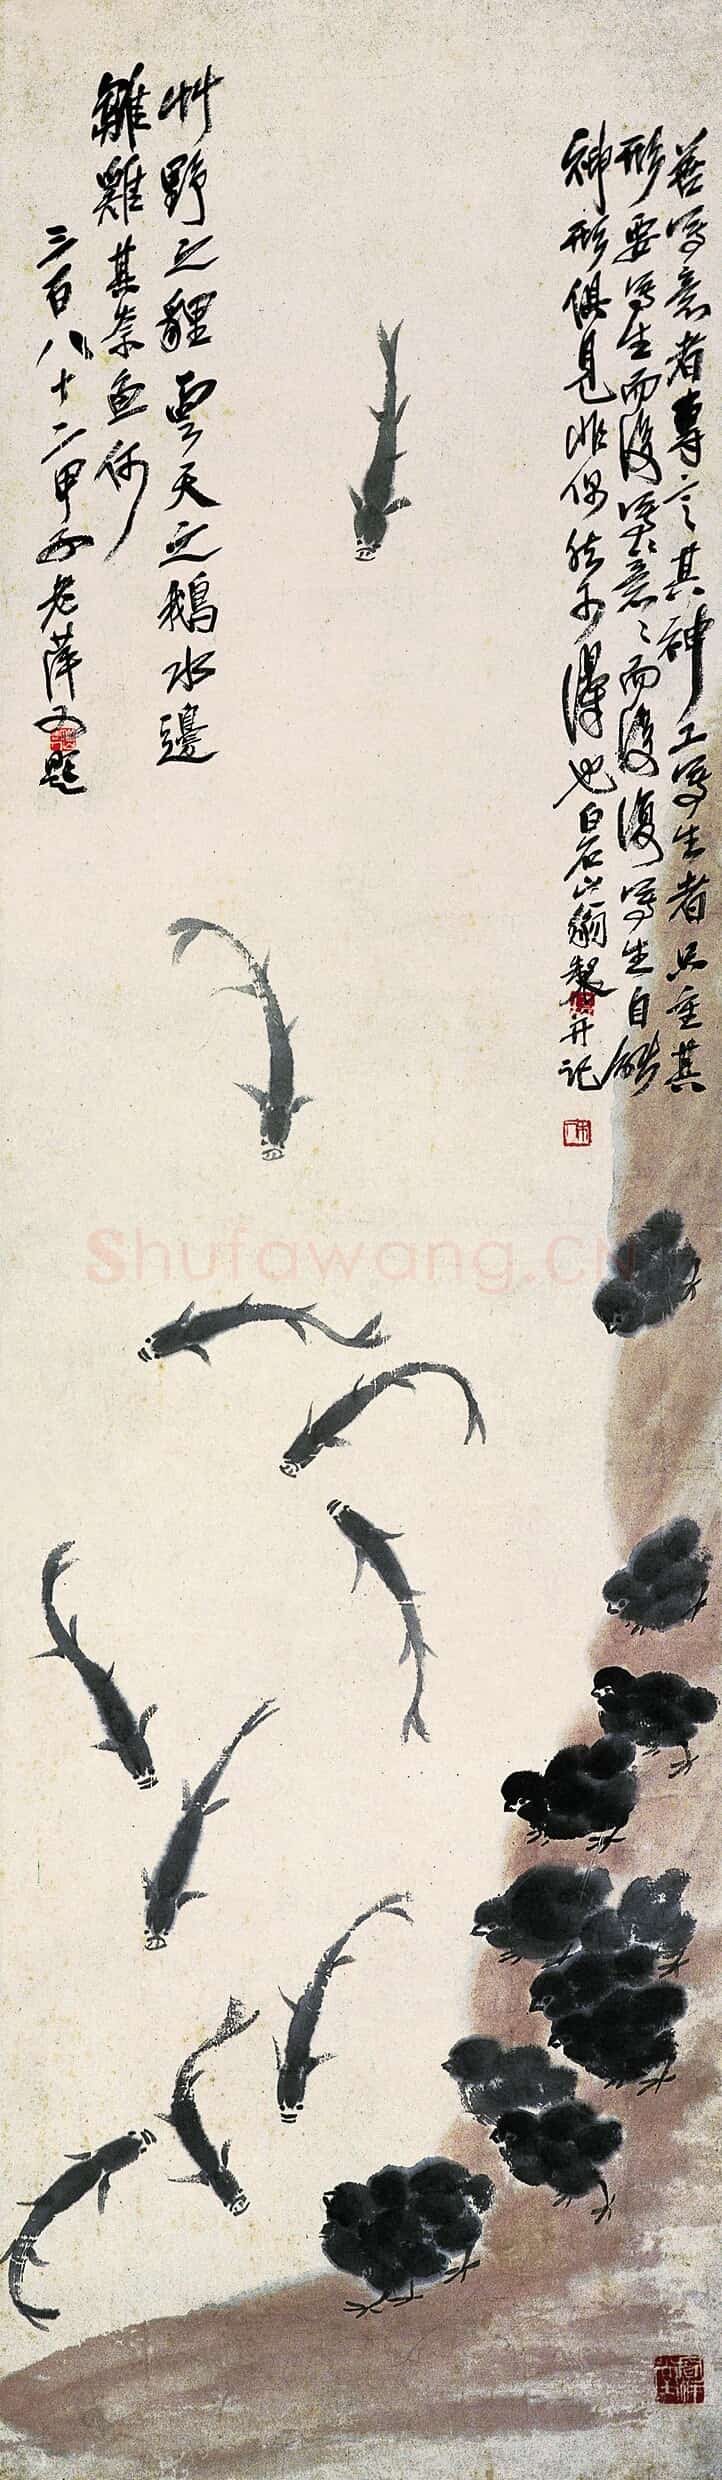 善写意者專言其神工写生者只重其
形要写生而後写意写意而後復写生自能
神形俱見非偶然可得也白石山翁製并記
艸野之貍雲天之鵝水邊
雛雞其奈魚何
三百八十二甲子老萍又題
Shufawang.CN